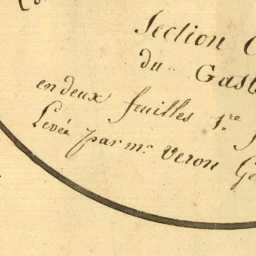 Section
du Gast
en deux feuilles 1.re
Levée par mr. Veron